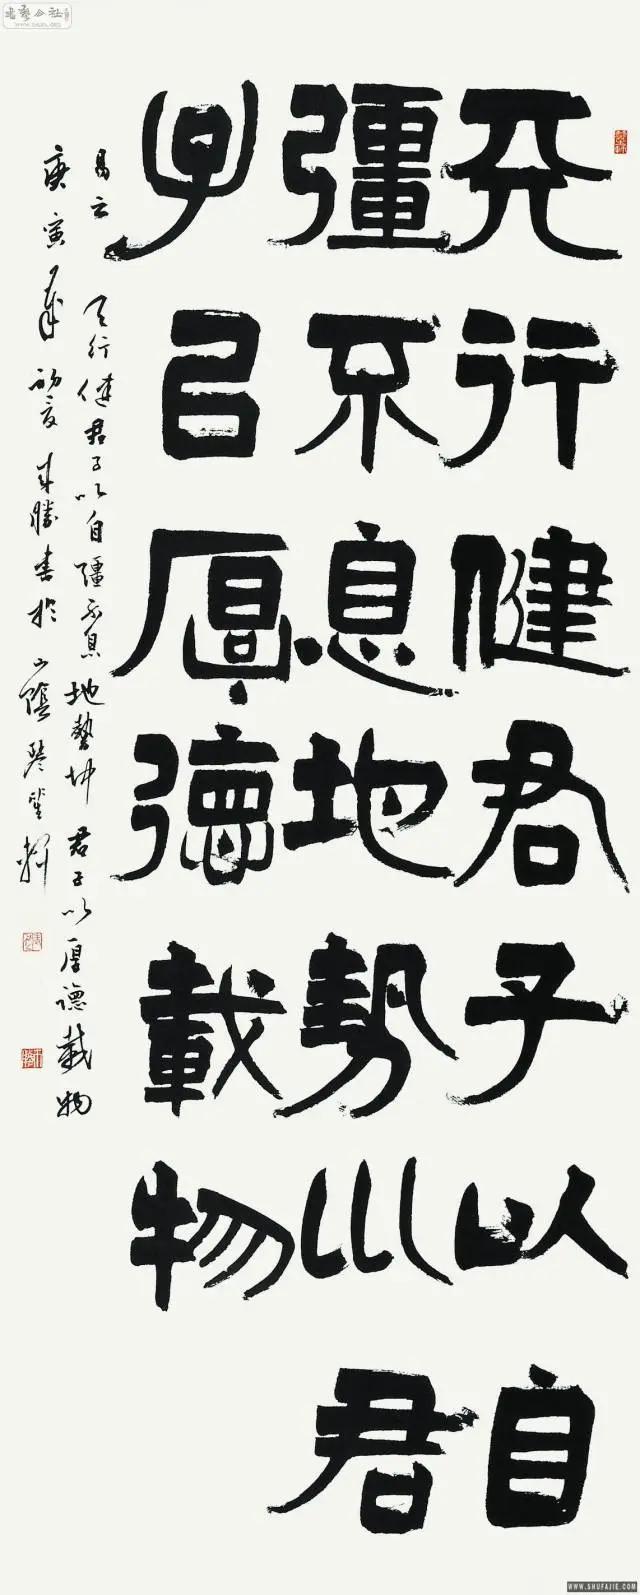 天行健君子以自
彊不息地勢川君
子㠯厚德載物
易云 天行健君子以自彊不息地勢坤 君子以厚德載物
庚寅年初夏 來勝書於山陰琴
WWW.SHUFAJIE.COM